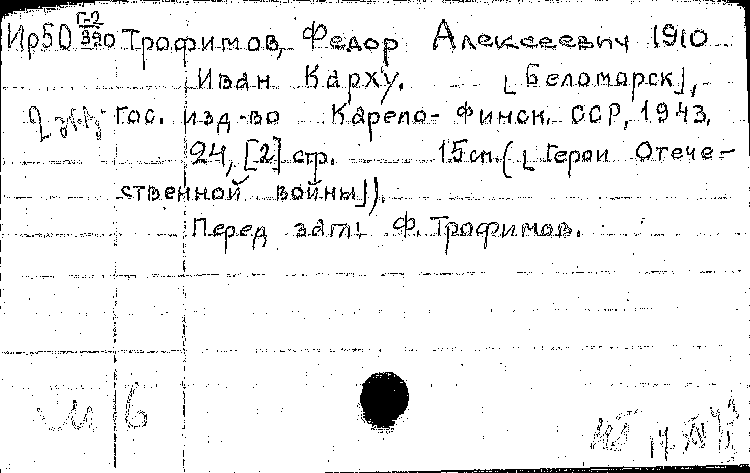 Ир50 Г-2/390 Трофимов, Федор Алексеевич 1910
Иван Карху. [Беломорск],
2 экз. Гос. изд-во Карело-Финск. ССР, 1943.
24, [2] стр. 15 см. ([Герои Отече-
ственной войны]).
Перед загл: Ф. Трофимов.
И 6